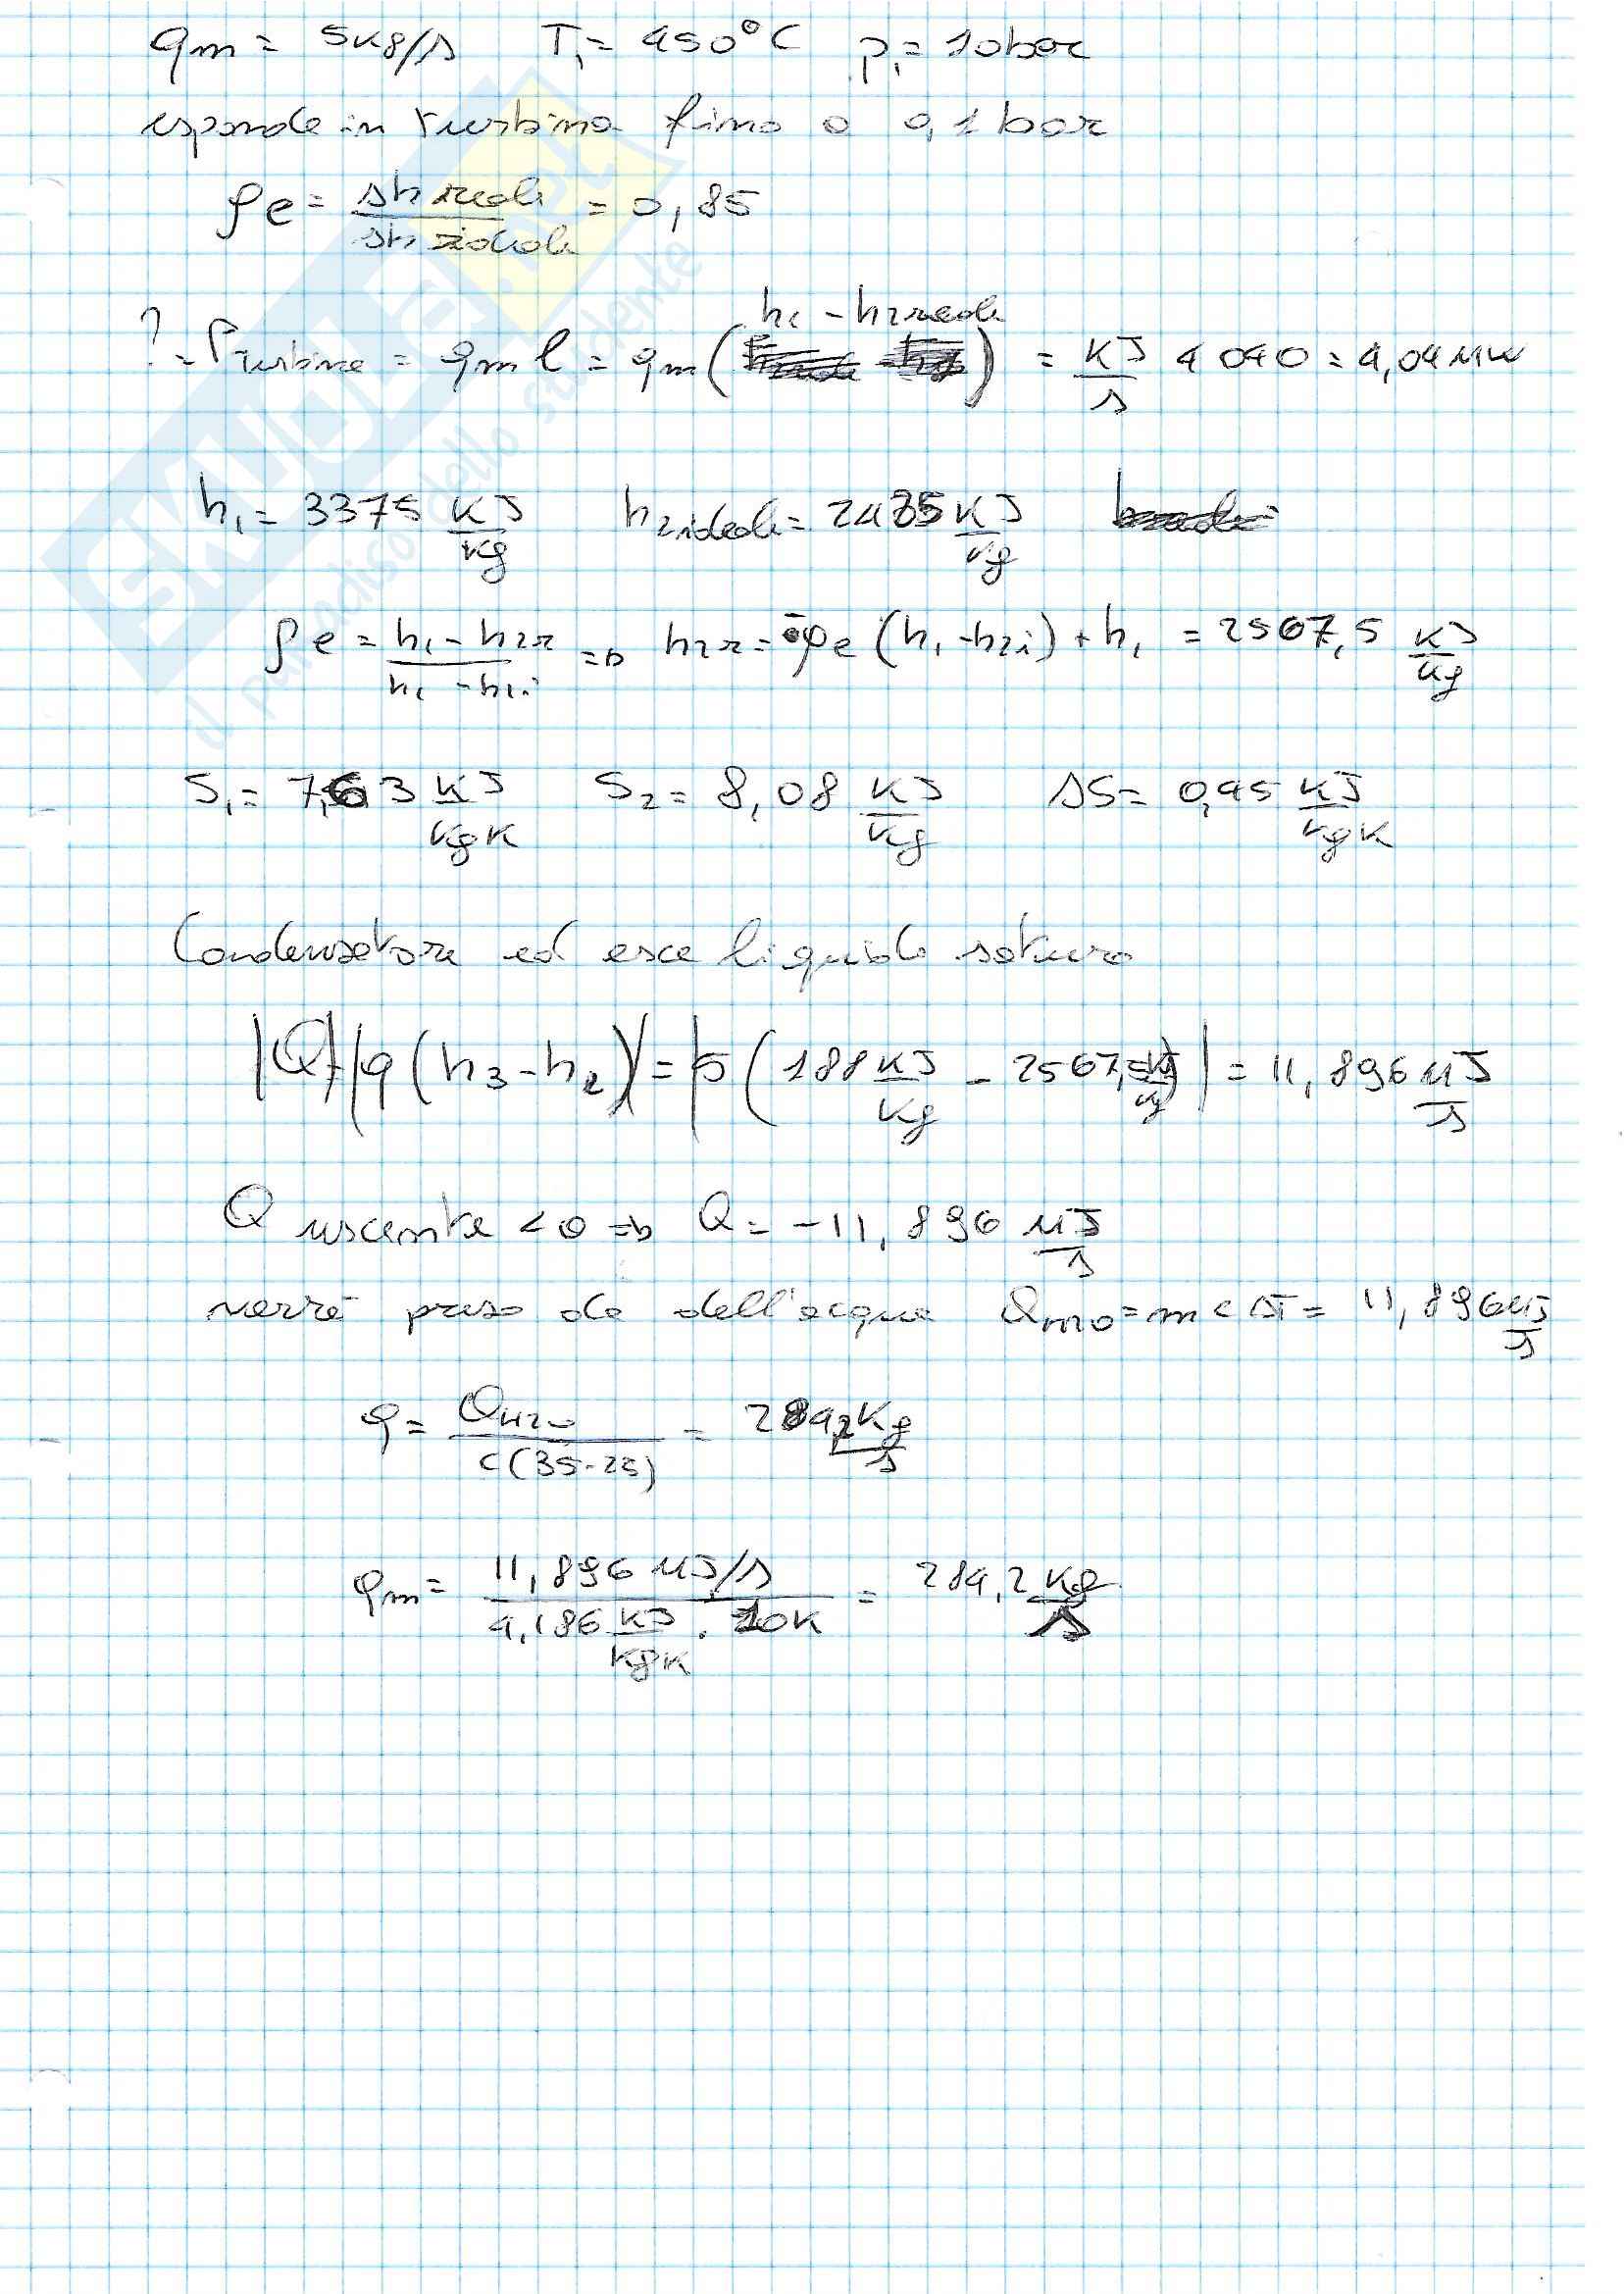 qm = 5kg/s T₁= 450°C p₁= 10bar
espande in turbina fino a 0,1 bar
ρe = Δh reale / Δh ideale = 0,85
h₁ - h₂reale
? = Pturbina = qm l = qm ( ) = kJ/s 4040 = 4,04MW
h₁ = 3375 kJ/kg h₂ideale = 2425 kJ/kg
ρe = h₁ - h₂r / h₁ - h₂i => h₂r = -ρe (h₁ - h₂i) + h₁ = 2567,5 kJ/kg
S₁ = 7,63 kJ/kgK S₂ = 8,08 kJ/kg ΔS = 0,45 kJ/kgK
Condensatore ed esce liquido saturo
|Q|=|q (h₃ - h₂)| = |5 (188 kJ/kg - 2567,5 kJ/kg)| = 11,896 MJ/s
Q uscente < 0 => Q = -11,896 MJ/s
verrà preso da dell'acqua QH20 = m c ΔT = 11,896 MJ/s
q = QH20 / c(35-25) = 284,2 kg/s
qm = 11,896 MJ/s / 4,186 kJ/kgK · 10K = 284,2 kg/s
SKUOLA.net
il paradiso dello studente